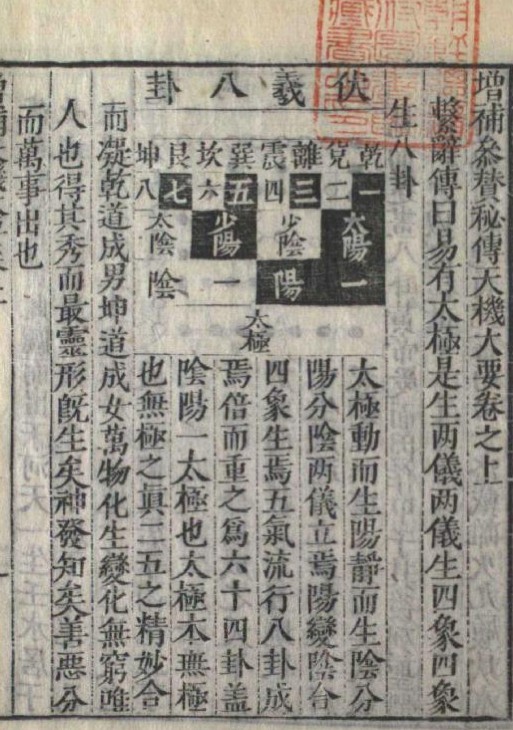 增補參贊秘傳天機大要卷之上
繫辭傳曰易有太極是生两儀两儀生四象四象
生八卦
伏羲八卦
乾兌離震巽坎艮坤
一二三四五六七八
太陽少陰少陽太陰
陽陰
太極
太極動而生陽静而生陰分
陽分陰两儀立焉陽變陰合
四象生焉五氣流行八卦成
焉倍而重之爲六十四卦盖
陰陽一太極也太極本無極
也無極之眞二五之精妙合
而凝乾道成男坤道成女萬物化生變化無窮唯
人也得其秀而最靈形旣生矣神發知矣善惡分
而萬事出也